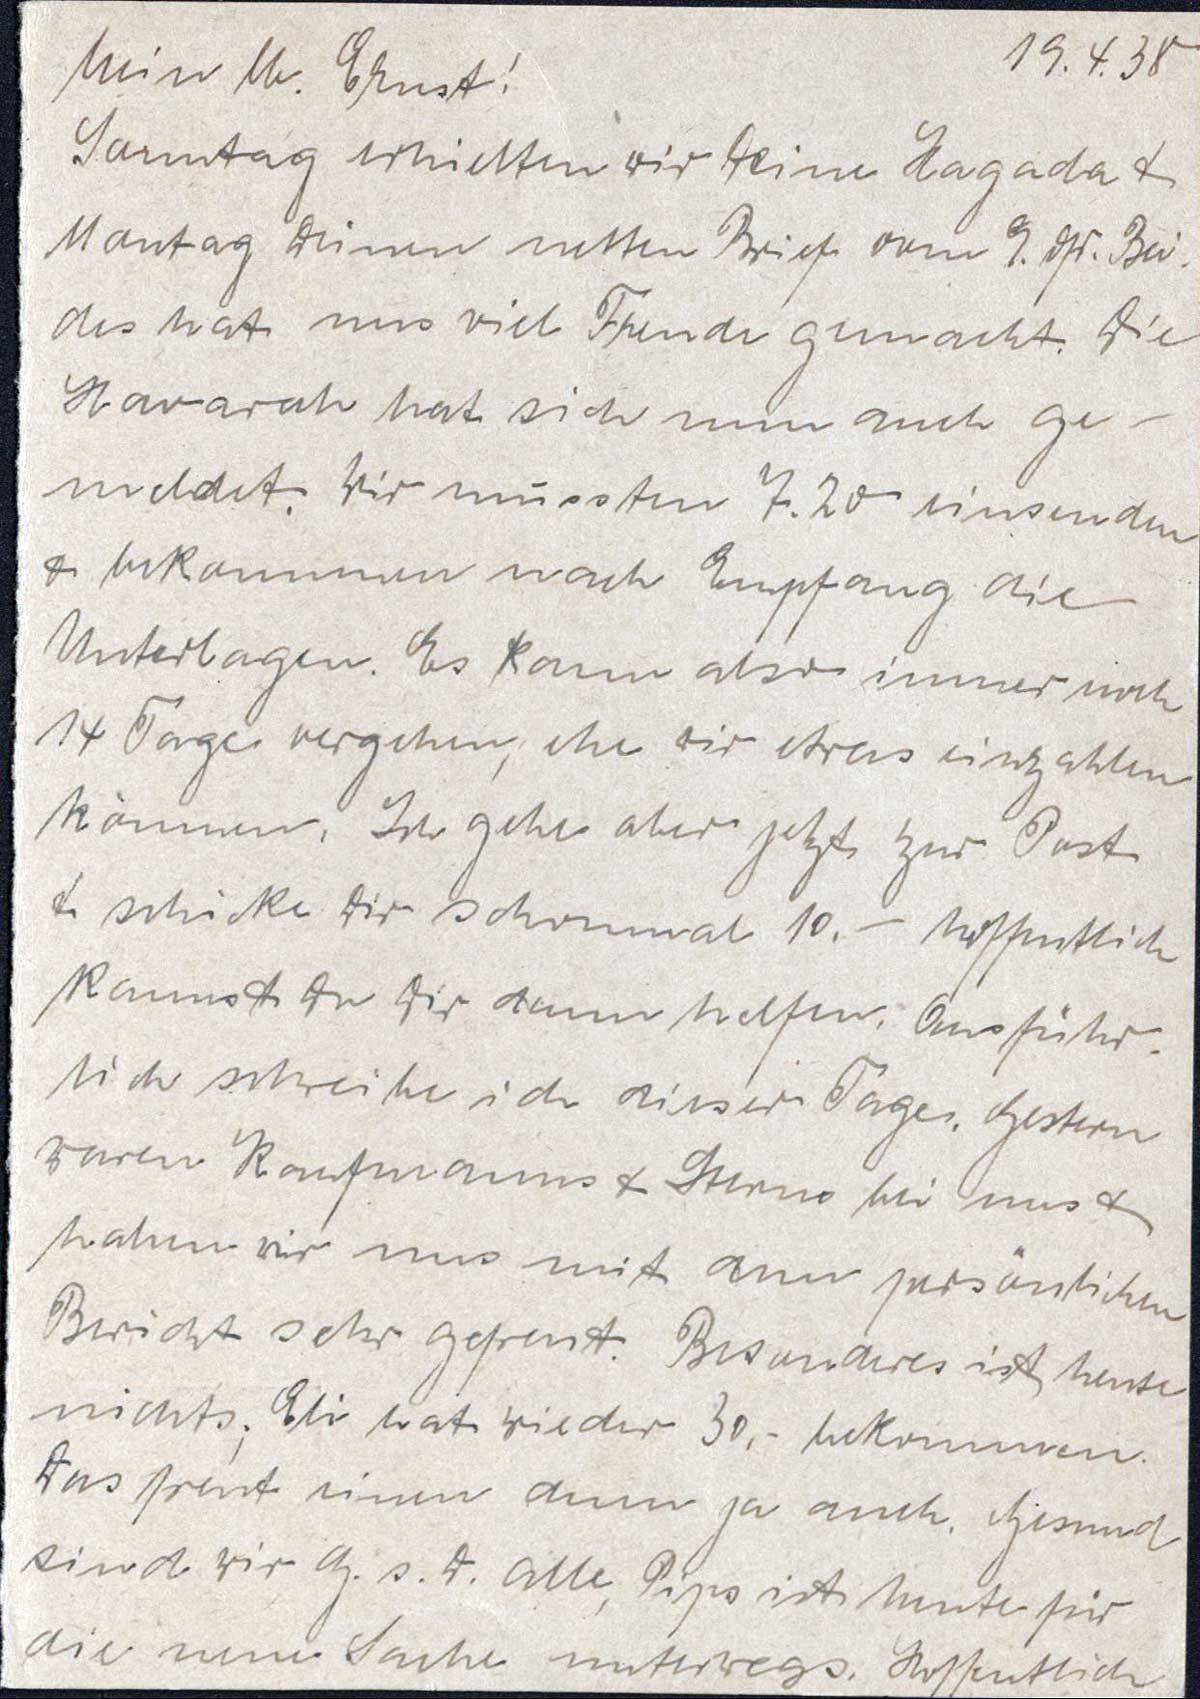 19.4.38
Mein lb. Ernst!
Sonntag erhielten wir Deine Hagada &
Montag Deinen netten Brief vom 9. ds. Bei-
des hat uns viel Freude gemacht. Die
Havarah hat sich nun auch ge-
meldet. Wir mussten 7.20 einsenden
& bekommen nach Empfang die
Unterlagen. Es kann also immer noch
14 Tage vergehen, ehe wir etwas einzahlen
können. Ich gehe aber jetzt zur Post
& schicke Dir schonmal 10.- hoffentlich
kannst Du Dir dann helfen. Ausführ-
lich schreibe ich dieser Tage. Gestern
waren Kaufmanns & Sterns bei uns &
haben wir uns mit dem persönlichen
Bericht sehr gefreut. Besonderes ist heute
nichts, Eli hat wieder 30.- bekommen.
Das freut einen denn ja auch. Gesund
sind wir G. s. D. alle, Pips ist heute für
die neue Sache unterwegs. Hoffentlich